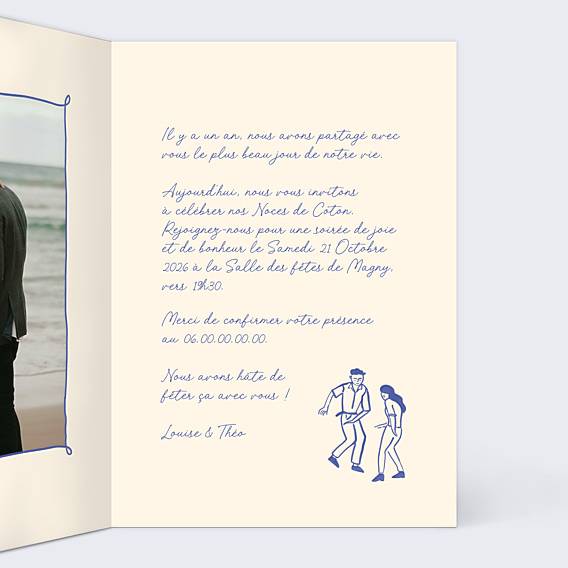 Il y a un an, nous avons partagé avec
vous le plus beau jour de notre vie.
Aujourd'hui, nous vous invitons
à célébrer nos Noces de Coton.
Rejoignez-nous pour une soirée de joie
et de bonheur le Samedi 21 Octobre
2026 à la Salle des fêtes de Magny,
vers 19h30.
Merci de confirmer votre présence
au 06.00.00.00.00.
Nous avons hâte de
fêter ça avec vous !
Louise & Théo